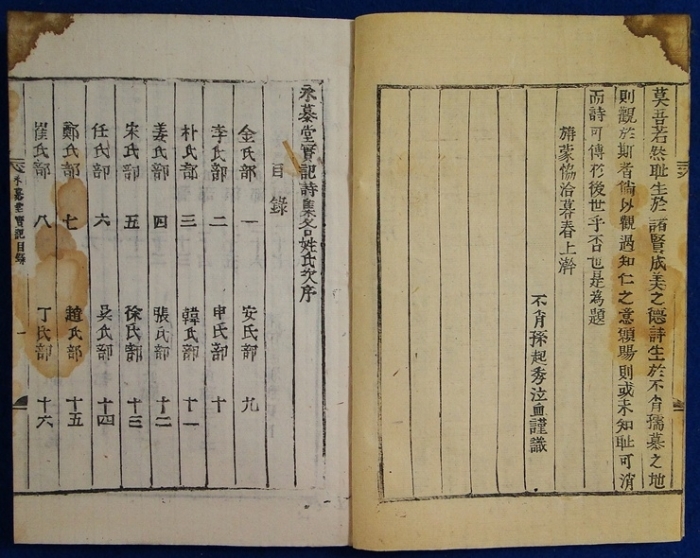 莫吾若然耻生於諸賢成美之德詩生於不肖孺慕之地
則觀於斯者倘以觀過知仁之意賜則或未知耻可消
而詩可傳於後世乎否也是為題
旃蒙協洽暮春上澣
不肖孫起秀泣血謹識
永慕堂實記詩集各姓氏次序
目錄
金氏部 一 安氏部 九
李氏部 二 申氏部 十
朴氏部 三 韓氏部 十一
姜氏部 四 張氏部 十二
宋氏部 五 徐氏部 十三
任氏部 六 吳氏部 十四
鄭氏部 七 趙氏部 十五
崔氏部 八 丁氏部 十六
永慕堂實記目錄 一